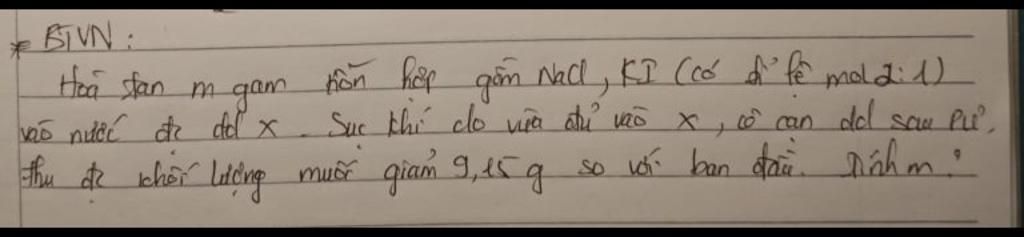 * BTVN:
Hoà tan m gam hỗn hợp gồm NaCl, KI (có tỉ lệ mol 2:1)
vào nước đc dd X. Sục khí clo vừa đủ vào X, cô cạn dd sau pư.
thu đc khối lượng muối giảm 9,15g so với ban đầu. Tính m?